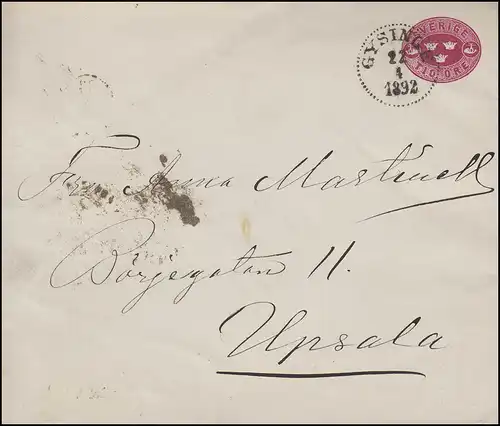 SVERIGE
TIO ÖRE
GYSINGE
22
4
1892
Fru Anna Martinell
Börjegatan 11.
Upsala